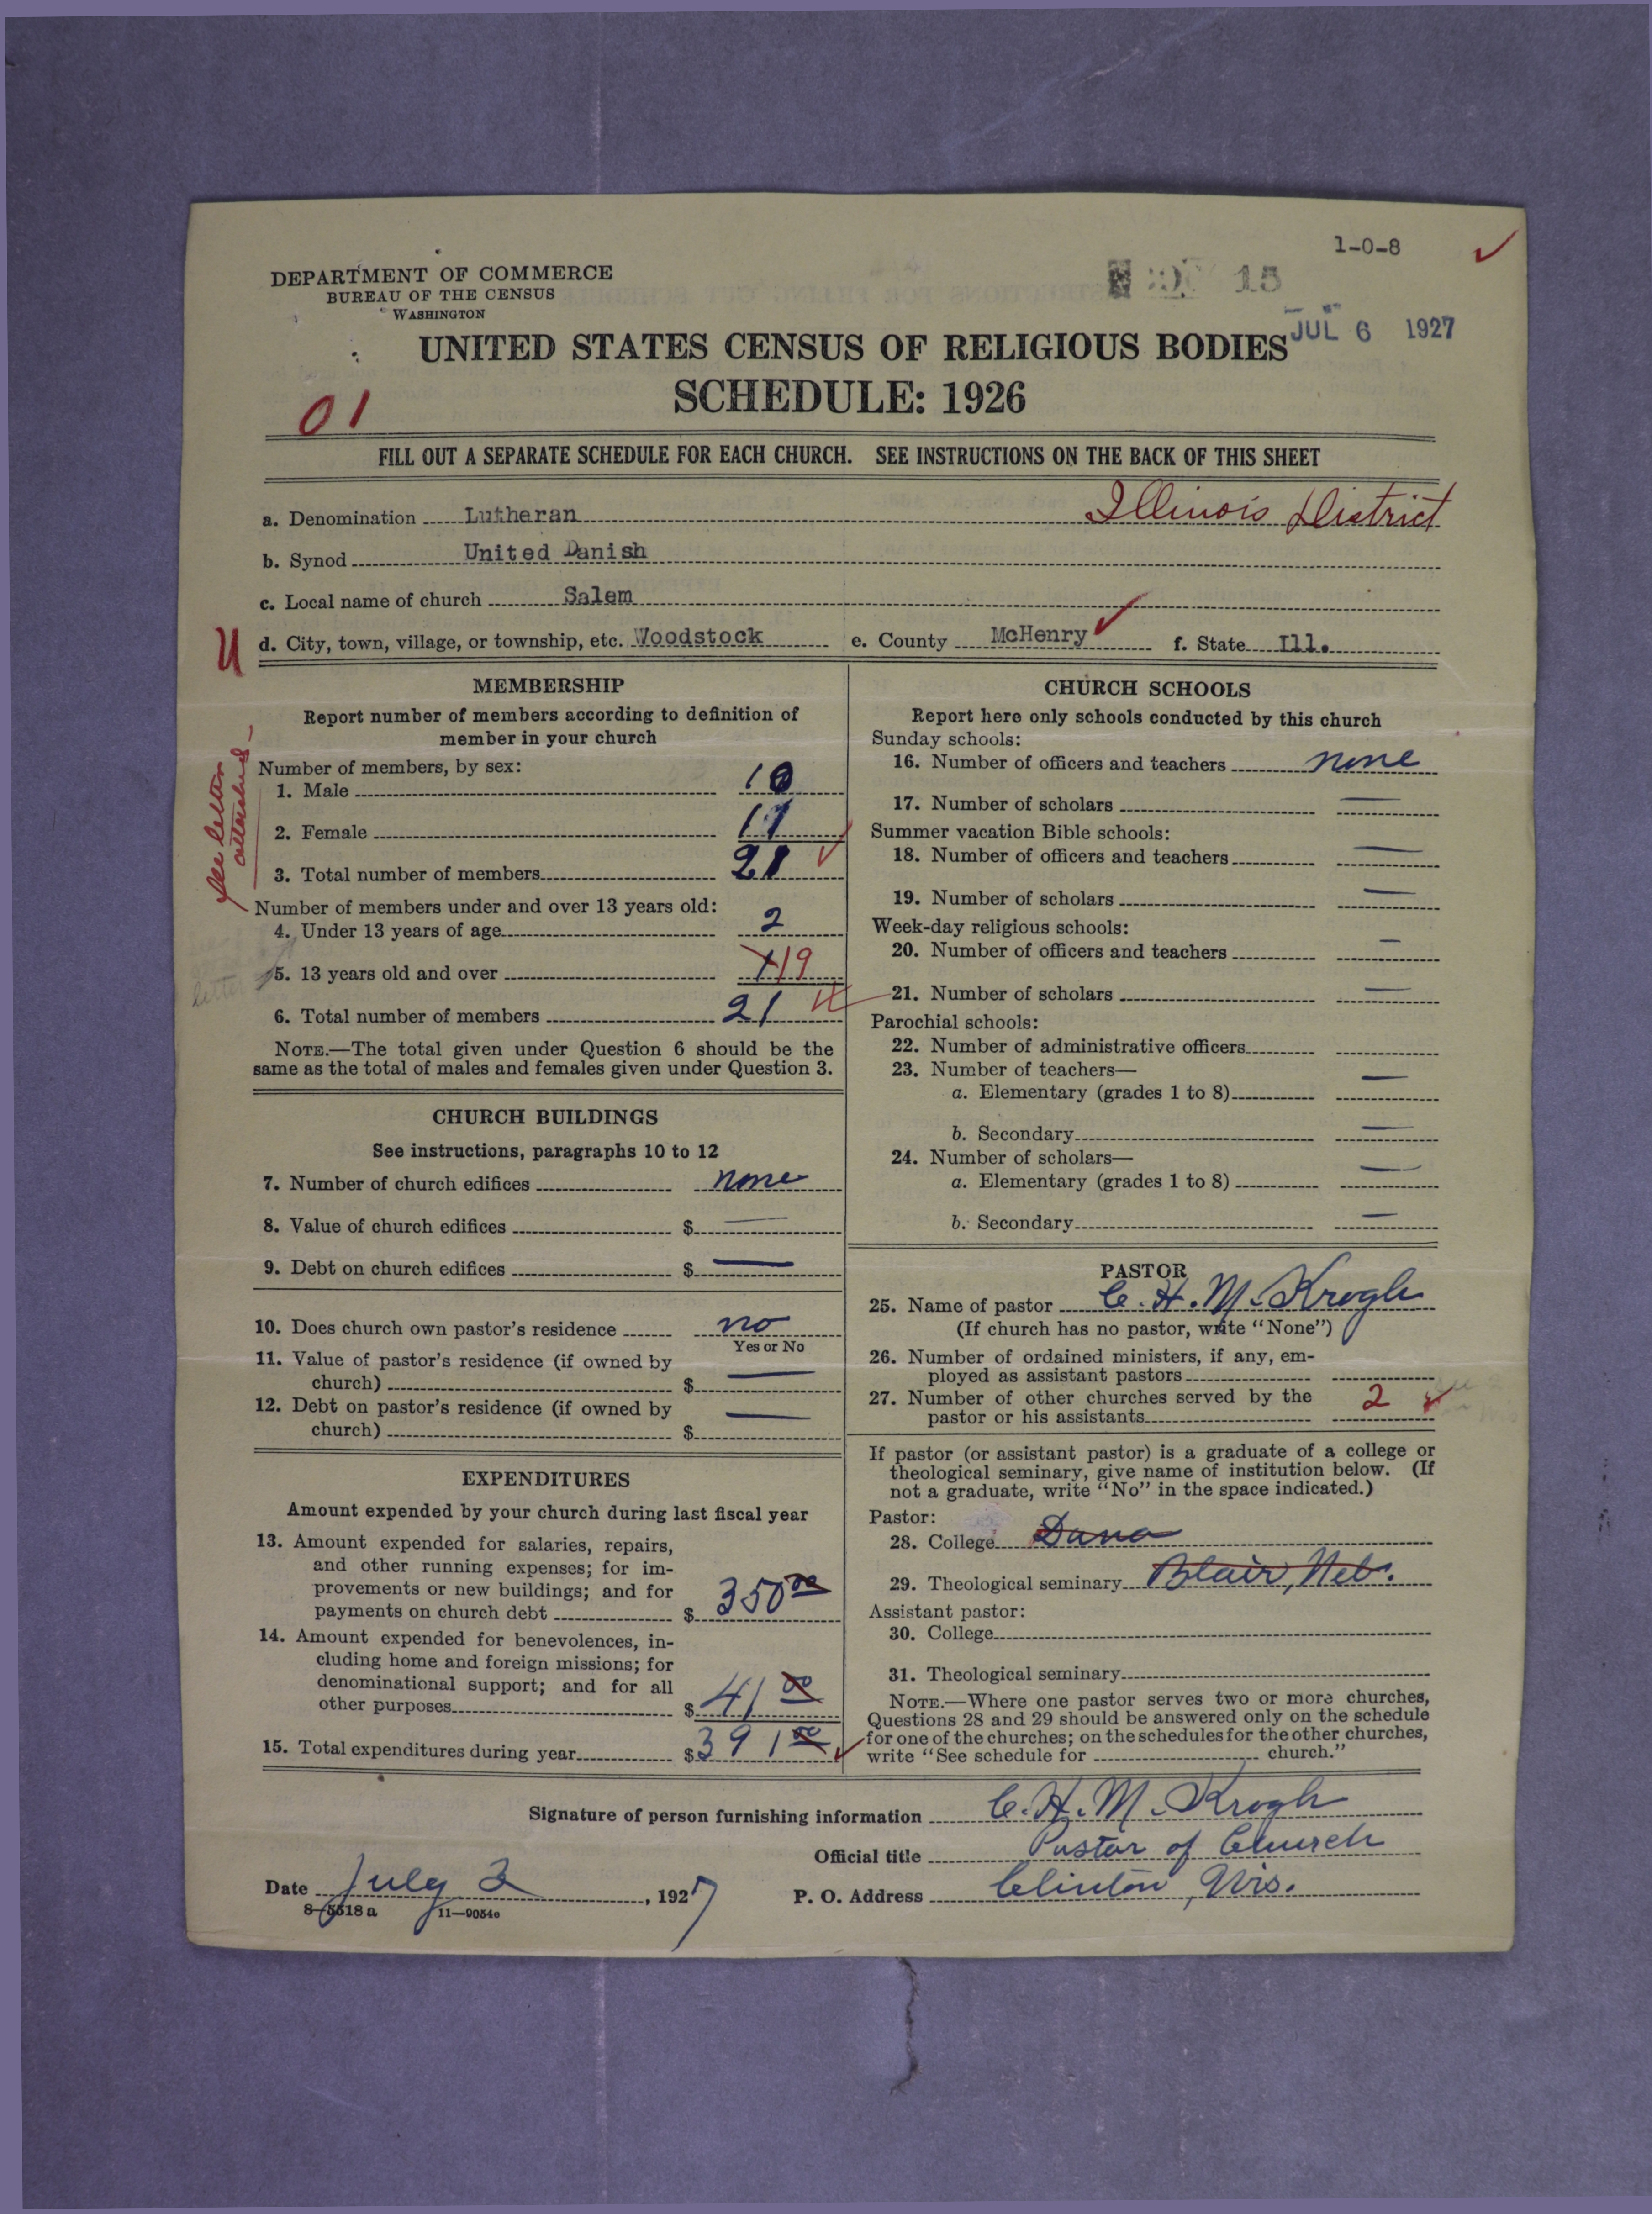 1-0-8
DEPARTMENT OF COMMERCE
BUREAU OF THE CENSUS
WASHINGTON
15
JUL 6 1927
UNITED STATES CENSUS OF RELIGIOUS BODIES
SCHEDULE: 1926
01
FILL OUT A SEPARATE SCHEDULE FOR EACH CHURCH. SEE INSTRUCTIONS ON THE BACK OF THIS SHEET
a. Denomination Lutheran Illinois District
b. Synod United Danish
c. Local name of church Salem
U
d. City, town, village, or township, etc. Woodstock e. County McHenry f. State Ill.
MEMBERSHIP
Report number of members according to definition of
member in your church
See letter
attached
Number of members, by sex:
1. Male 10
2. Female 11
3. Total number of members 21
Number of members under and over 13 years old:
4. Under 13 years of age 2
letter
5. 13 years old and over 19
6. Total number of members 21
NOTE.—The total given under Question 6 should be the
same as the total of males and females given under Question 3.
CHURCH BUILDINGS
See instructions, paragraphs 10 to 12
7. Number of church edifices none
8. Value of church edifices $ —
9. Debt on church edifices $ —
10. Does church own pastor's residence no
Yes or No
11. Value of pastor's residence (if owned by
church) $ —
12. Debt on pastor's residence (if owned by
church) $ —
EXPENDITURES
Amount expended by your church during last fiscal year
13. Amount expended for salaries, repairs,
and other running expenses; for im-
provements or new buildings; and for
payments on church debt $ 350 00
14. Amount expended for benevolences, in-
cluding home and foreign missions; for
denominational support; and for all
other purposes $ 41 00
15. Total expenditures during year $ 391 00
CHURCH SCHOOLS
Report here only schools conducted by this church
Sunday schools:
16. Number of officers and teachers none
17. Number of scholars —
Summer vacation Bible schools:
18. Number of officers and teachers —
19. Number of scholars —
Week-day religious schools:
20. Number of officers and teachers —
21. Number of scholars —
Parochial schools:
22. Number of administrative officers
23. Number of teachers—
a. Elementary (grades 1 to 8) —
b. Secondary —
24. Number of scholars—
a. Elementary (grades 1 to 8) —
b. Secondary —
PASTOR
25. Name of pastor C. H. M. Krogh
(If church has no pastor, write "None")
26. Number of ordained ministers, if any, em-
ployed as assistant pastors
27. Number of other churches served by the
pastor or his assistants 2
If pastor (or assistant pastor) is a graduate of a college or
theological seminary, give name of institution below. (If
not a graduate, write "No" in the space indicated.)
Pastor:
28. College Dana
29. Theological seminary Blair, Neb.
Assistant pastor:
30. College
31. Theological seminary
NOTE.—Where one pastor serves two or more churches,
Questions 28 and 29 should be answered only on the schedule
for one of the churches; on the schedules for the other churches,
write "See schedule for church."
Signature of person furnishing information C. H. M. Krogh
Official title Pastor of Church
Date July 2, 1927 P. O. Address Clinton, Wis.
8-5518a 11-9054c